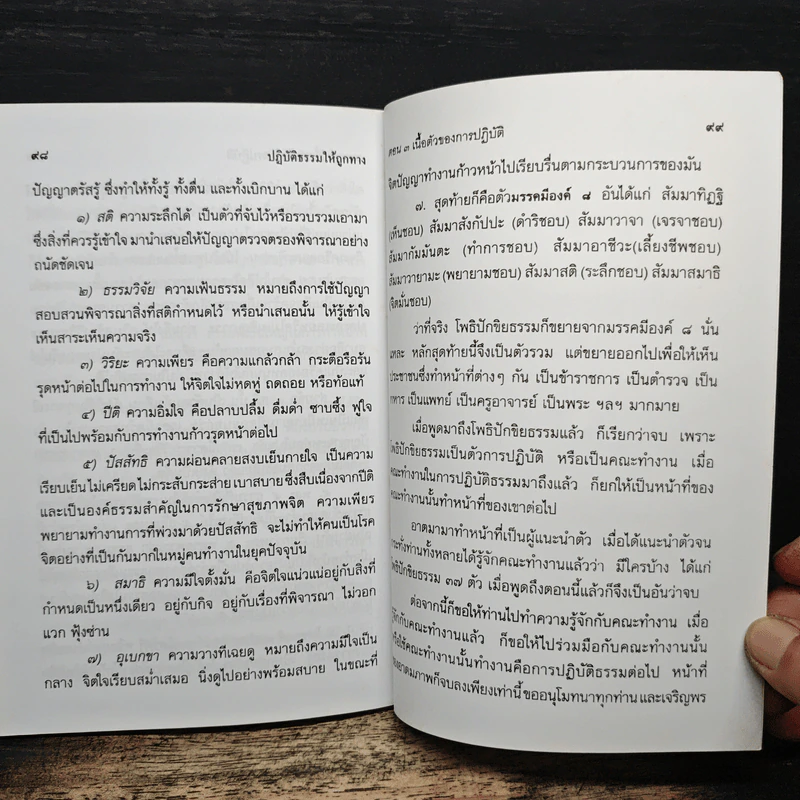 ๙๘
ปฏิบัติธรรมให้ถูกทาง
ปัญญาตรัสรู้ ซึ่งทำให้ทั้งรู้ ทั้งตื่น และทั้งเบิกบาน ได้แก่
๑) สติ ความระลึกได้ เป็นตัวที่จับไว้หรือรวบรวมเอามา
ซึ่งสิ่งที่ควรรู้เข้าใจ มานำเสนอให้ปัญญาตรวจตรองพิจารณาอย่าง
ถนัดชัดเจน
๒) ธรรมวิจัย ความเฟ้นธรรม หมายถึงการใช้ปัญญา
สอบสวนพิจารณาสิ่งที่สติกำหนดไว้ หรือนำเสนอนั้น ให้รู้เข้าใจ
เห็นสาระเห็นความจริง
๓) วิริยะ ความเพียร คือความแกล้วกล้า กระตือรือร้น
รุดหน้าต่อไปในการทำงาน ให้จิตใจไม่หดหู่ ถดถอย หรือท้อแท้
๔) ปีติ ความอิ่มใจ คือปลาบปลื้ม ดื่มด่ำ ซาบซึ้ง ฟูใจ
ที่เป็นไปพร้อมกับการทำงานก้าวรุดหน้าต่อไป
๕) ปัสสัทธิ ความผ่อนคลายสงบเย็นกายใจ เป็นความ
เรียบเย็น ไม่เครียด ไม่กระสับกระส่าย เบาสบาย ซึ่งสืบเนื่องจากปีติ
และเป็นองค์ธรรมสำคัญในการรักษาสุขภาพจิต ความเพียร
พยายามทำงานการที่พ่วงมาด้วยปัสสัทธิ จะไม่ทำให้คนเป็นโรค
จิตอย่างที่เป็นกันมากในหมู่คนทำงานในยุคปัจจุบัน
๖) สมาธิ ความมีใจตั้งมั่น คือจิตใจแน่วแน่อยู่กับสิ่งที่
กำหนดเป็นหนึ่งเดียว อยู่กับกิจ อยู่กับเรื่องที่พิจารณา ไม่วอก
แวก ฟุ้งซ่าน
๗) อุเบกขา ความวางทีเฉยดู หมายถึงความมีใจเป็น
กลาง จิตใจเรียบสม่ำเสมอ นิ่งดูไปอย่างพร้อมสบาย ในขณะที่
ตอน ๓ เนื้อตัวของการปฏิบัติ
๙๙
จิตปัญญาทำงานก้าวหน้าไปเรียบรื่นตามกระบวนการของมัน
๗. สุดท้ายก็คือตัวมรรคมีองค์ ๘ อันได้แก่ สัมมาทิฏฐิ
(เห็นชอบ) สัมมาสังกัปปะ (ดำริชอบ) สัมมาวาจา (เจรจาชอบ)
สัมมากัมมันตะ (ทำการชอบ) สัมมาอาชีวะ(เลี้ยงชีพชอบ)
สัมมาวายามะ (พยายามชอบ) สัมมาสติ (ระลึกชอบ) สัมมาสมาธิ
(จิตมั่นชอบ)
ว่าที่จริง โพธิปักขิยธรรมก็ขยายจากมรรคมีองค์ ๘ นั่น
แหละ หลักสุดท้ายนี้จึงเป็นตัวรวม แต่ขยายออกไปเพื่อให้เห็น
ประชาชนซึ่งทำหน้าที่ต่างๆ กัน เป็นข้าราชการ เป็นตำรวจ เป็น
ทหาร เป็นแพทย์ เป็นครูอาจารย์ เป็นพระ ฯลฯ มากมาย
เมื่อพูดมาถึงโพธิปักขิยธรรมแล้ว ก็เรียกว่าจบ เพราะ
โพธิปักขิยธรรมเป็นตัวการปฏิบัติ หรือเป็นคณะทำงาน เมื่อ
คณะทำงานในการปฏิบัติธรรมมาถึงแล้ว ก็ยกให้เป็นหน้าที่ของ
คณะทำงานนั้นทำหน้าที่ของเขาต่อไป
อาตมามาทำหน้าที่เป็นผู้แนะนำตัว เมื่อได้แนะนำตัวจน
กระทั่งท่านทั้งหลายได้รู้จักคณะทำงานแล้วว่า มีใครบ้าง ได้แก่
โพธิปักขิยธรรม ๓๗ ตัว เมื่อพูดถึงตอนนี้แล้วก็จึงเป็นอันว่าจบ
ต่อจากนี้ก็ขอให้ท่านไปทำความรู้จักกับคณะทำงาน เมื่อ
รู้จักกับคณะทำงานแล้ว ก็ขอให้ไปร่วมมือกับคณะทำงานนั้น
หรือใช้คณะทำงานนั้นทำงานคือการปฏิบัติธรรมต่อไป หน้าที่
ของอาตมภาพก็จบลงเพียงเท่านี้ ขออนุโมทนาทุกท่าน และเจริญพร